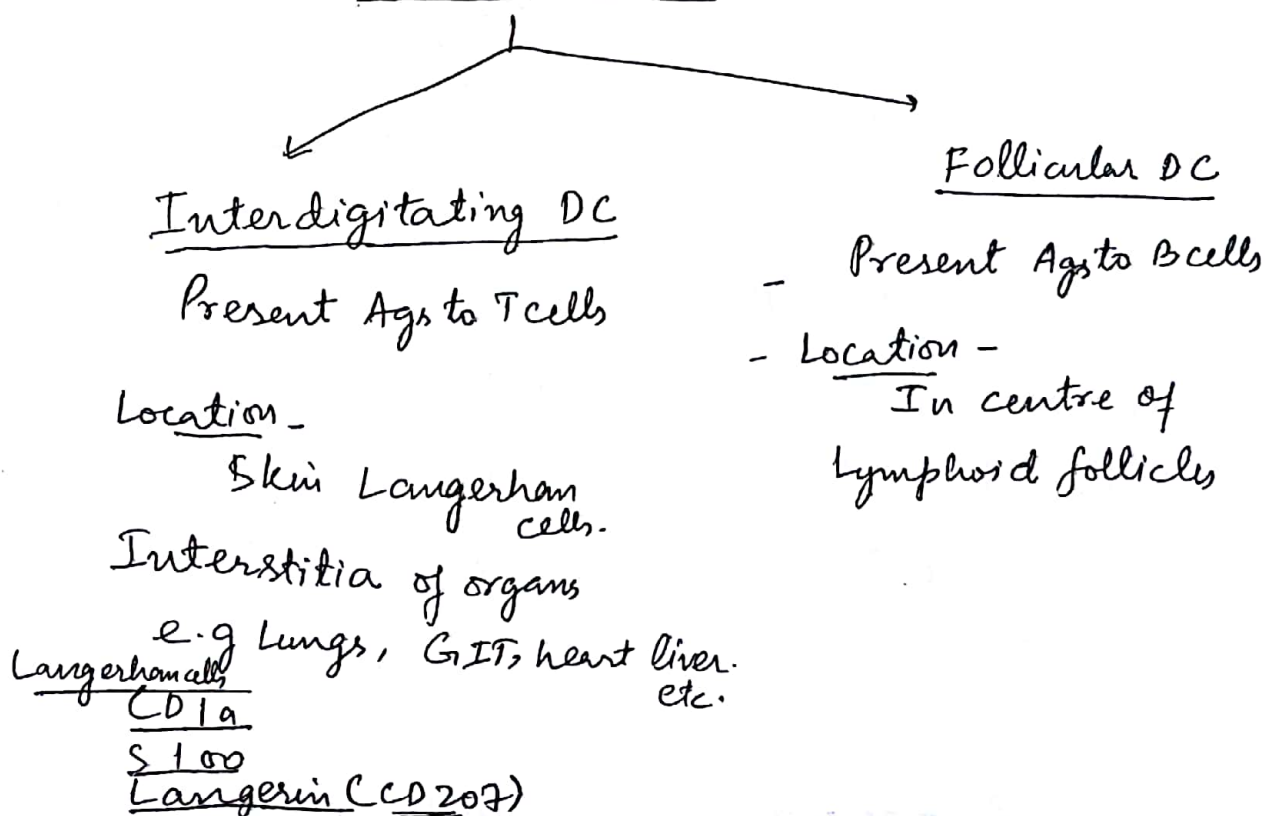 Interdigitating DC
Present Ags to T cells
Location -
Skin Langerhan
cells.
Interstitia of organs
e.g Lungs, GIT, heart liver.
etc.
Langerhan cells
CD1a
S100
Langerin (CD207)
Follicular DC
- Present Ags to B cells
- Location -
In centre of
Lymphoid follicles